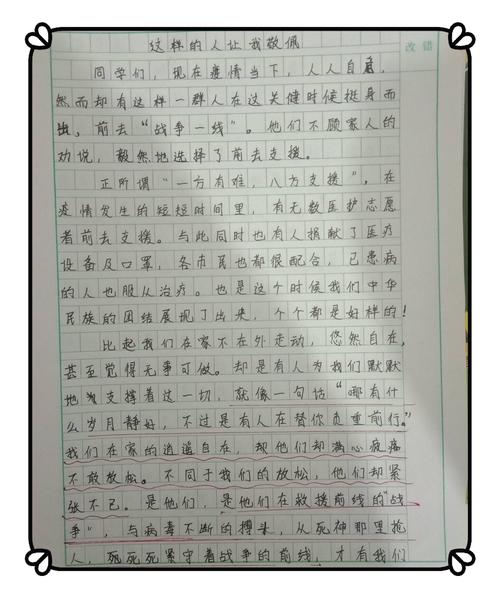 这样的人让我敬佩
改 错
同学们，现在疫情当下，人人自危，
然而却有这样一群人在这关健时候挺身而
出，前去“战争一线”。他们不顾家人的
劝说，毅然地选择了前去支援。
正所谓“一方有难，八方支援”，在
疫情发生的短短时间里，有无数医护志愿
者前去支援。与此同时也有人捐献了医疗
设备及口罩，各市民也都很配合，已患病
的人也服从治疗。也是这个时候我们中华
民族的团结展现了出来，个个都是好样的！
比起我们在家不在外走动，悠然自在，
甚至觉得无事可做。却是有人为我们默默
地支撑着这一切，就像一句话“哪有什
么岁月静好，不过是有人在替你负重前行。”
我们在家的逍遥自在，却他们却满心疲痛
不敢放松。不同于我们的放松，他们却紧
张不已。是他们，是他们在救援前线的“战
争”，与病毒不断的搏斗，从死神那里抢
人，死死死紧守着战争的前线，才有我们